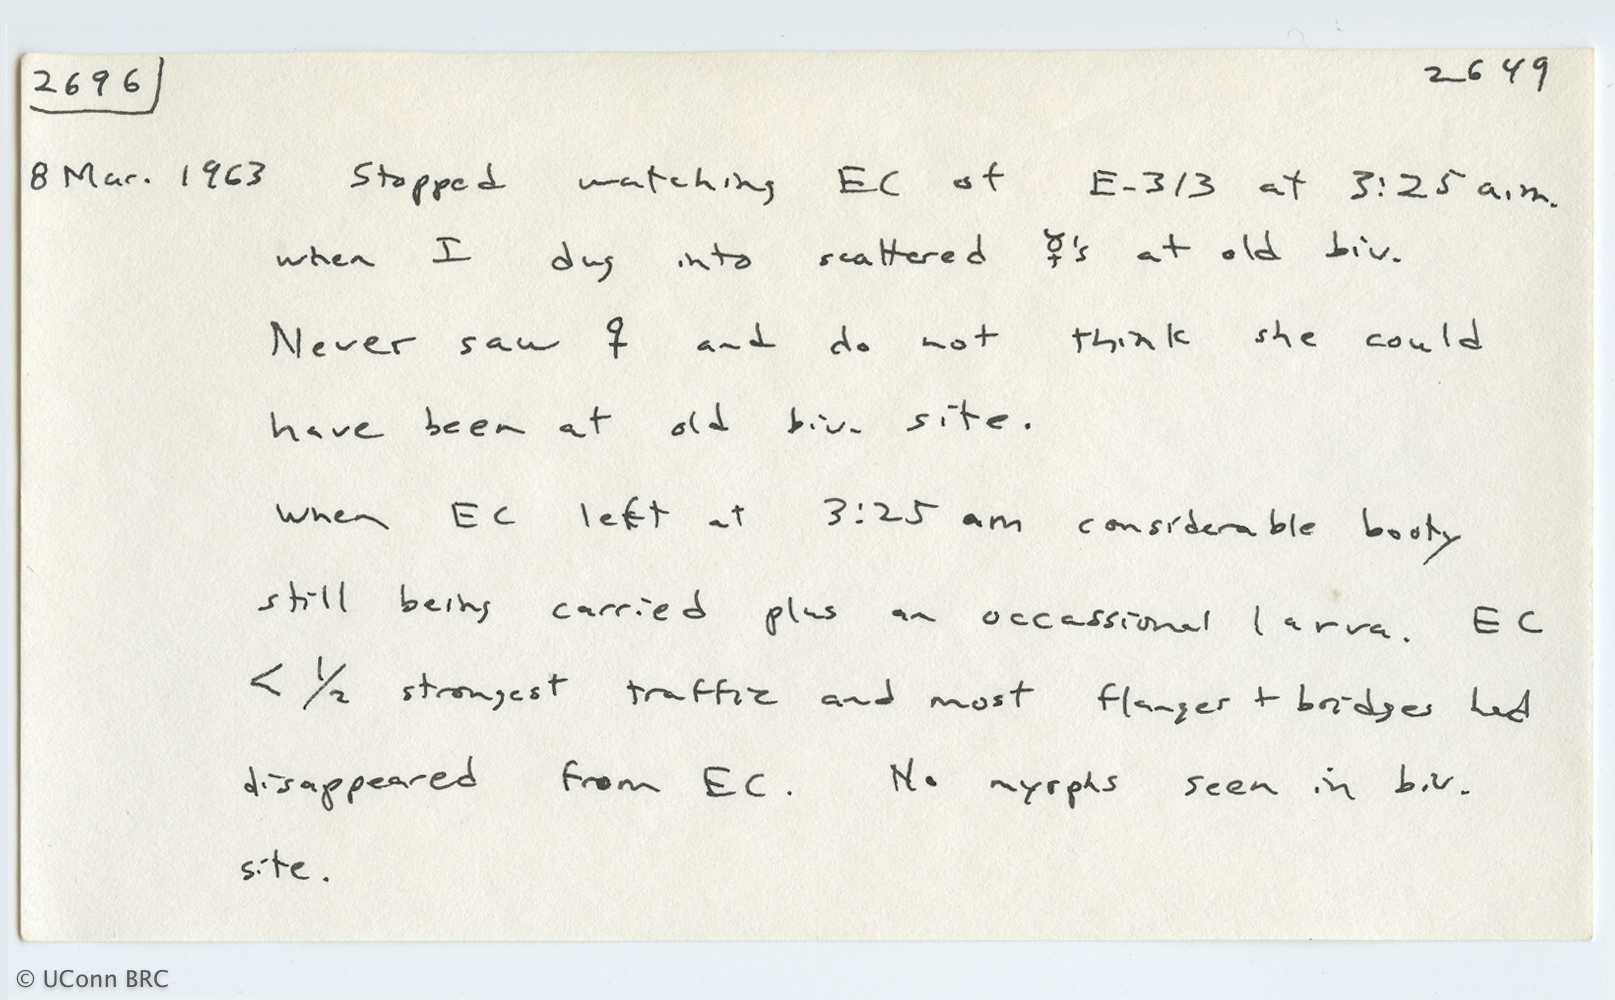 2696
2649
8 Mar. 1963 Stopped watching EC of E-313 at 3:25 a.m.
when I dug into scattered ☿'s at old biv.
Never saw ♀ and do not think she could
have been at old biv. site.
When EC left at 3:25 am considerable booty
still being carried plus an occassional larva. EC
< 1/2 strongest traffic and most flanges + bridges had
disappeared from EC. No myrphs seen in biv.
site.
© UConn BRC